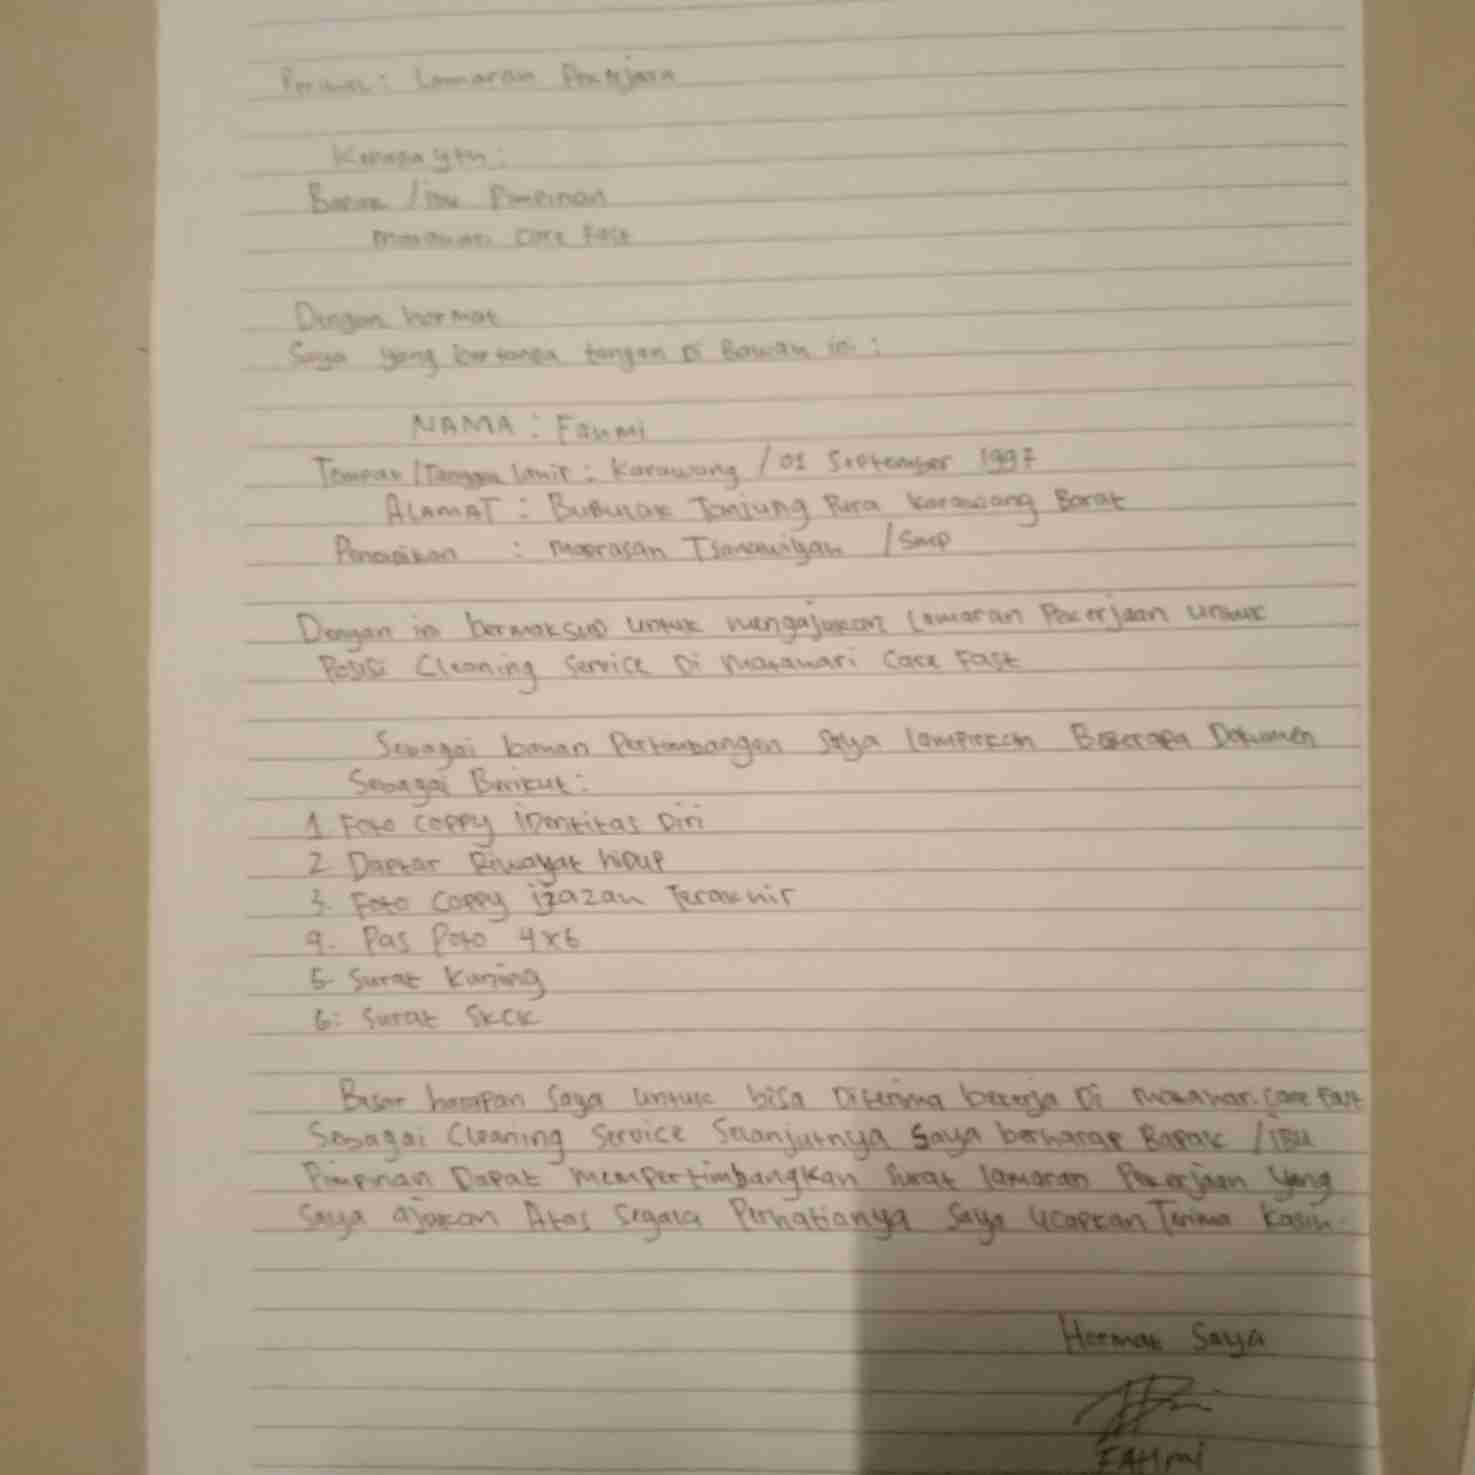 Perihal: Lamaran Pekerjaan
Kepada yth:
Bapak / ibu Pimpinan
Matahari Care Fast
Dengan hormat
Saya yang bertanda tangan Di Bawah ini :
NAMA : Fahmi
Tempat /Tanggal lahir : Karawang / 01 September 1997
ALAMAT : Bubulak Tanjung Pura Karawang Barat
Pendidikan : Madrasah Tsanawiyah / Smp
Dengan ini bermaksud untuk mengajukan Lamaran Pekerjaan untuk
Posisi Cleaning Service Di Matahari Care Fast
Sebagai bahan Pertimbangan Saya lampirkan Beberapa Dokumen
Sebagai Berikut:
1. Foto coppy iDentitas Diri
2. Daptar Riwayat hidup
3. Foto coppy ijazah Terakhir
4. Pas Poto 4x6
5. Surat Kuning
6: Surat SKCK
Besar harapan Saya untuk bisa Diterima bekerja Di Matahari Care Fast
Sebagai Cleaning Service Selanjutnya Saya berharap Bapak / iBu
Pimpinan Dapat mempertimbangkan Surat lamaran Pekerjaan Yang
Saya ajukan Atas Segala Perhatianya Saya ucapkan Terima kasih.
Hormat Saya
FAHmi